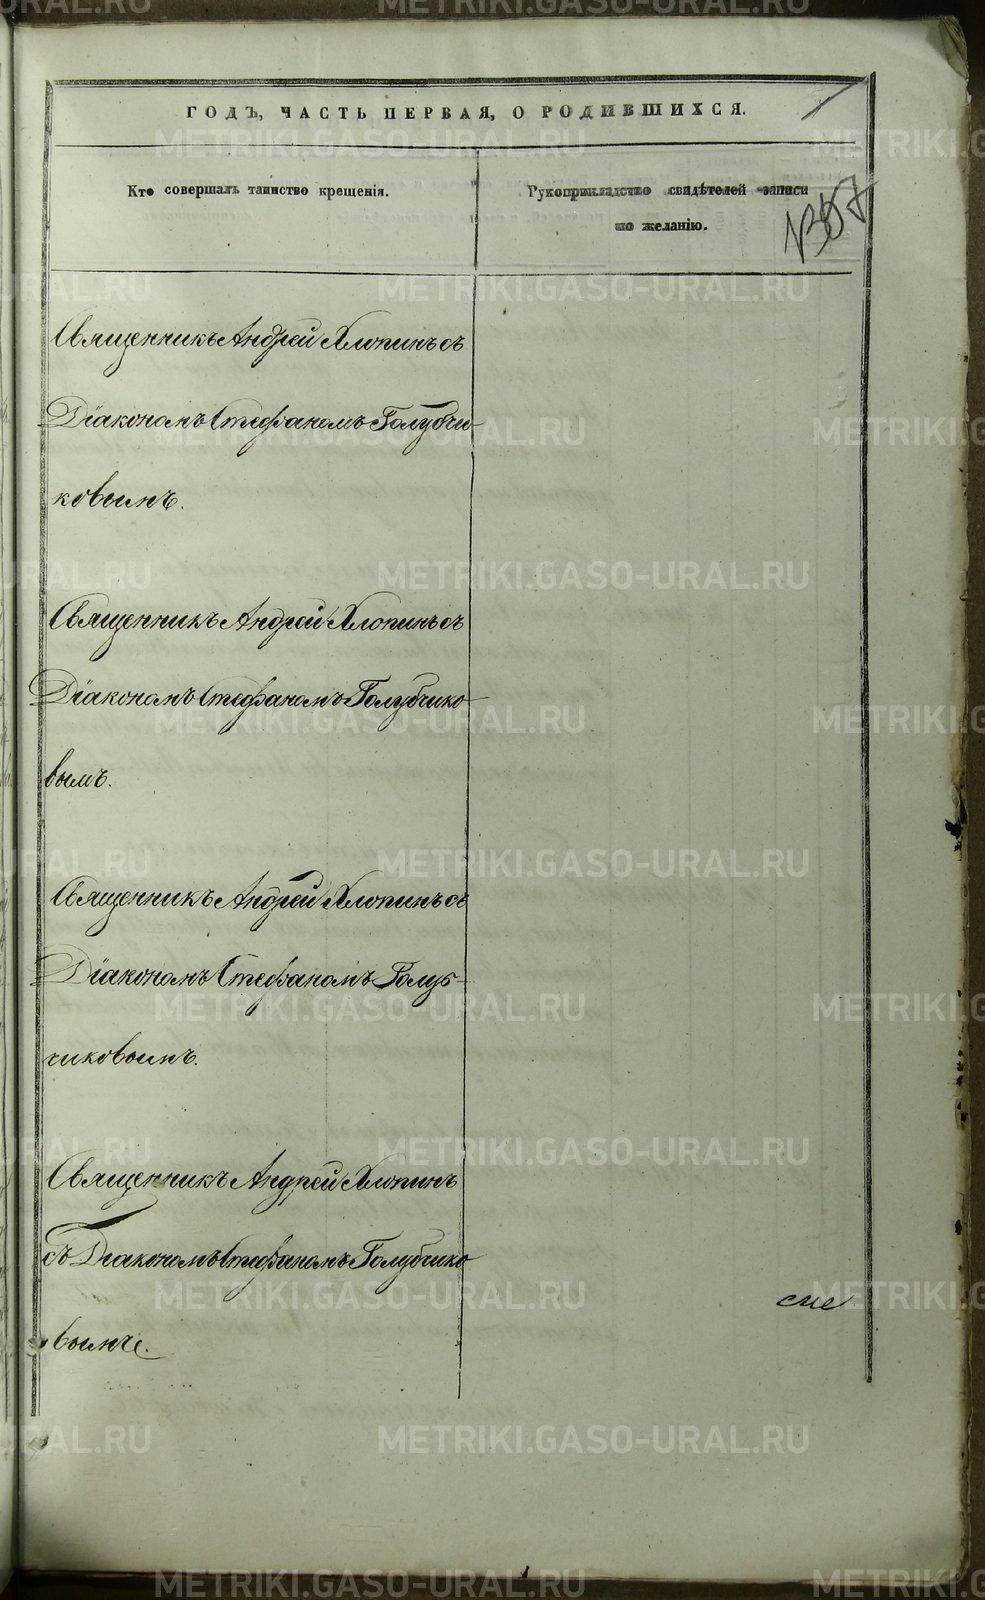 ГОДЪ, ЧАСТЬ ПЕРВАЯ, О РОДИВШИХСЯ.
Кто совершалъ таинство крещенія.
Рукоприкладство свидѣтелей записи
по желанію.
Священникъ Андрей Хлопинъ съ
Діакономъ Стефаномъ Голубчи-
ковымъ.
Священникъ Андрей Хлопинъ съ
Діакономъ Стефаномъ Голубчико
вымъ.
Священникъ Андрей Хлопинъ съ
Діакономъ Стефаномъ Голуб-
чиковымъ.
Священникъ Андрей Хлопинъ
съ Діакономъ Стефаномъ Голубчико
вымъ.
METRIKI.GASO-URAL.RU